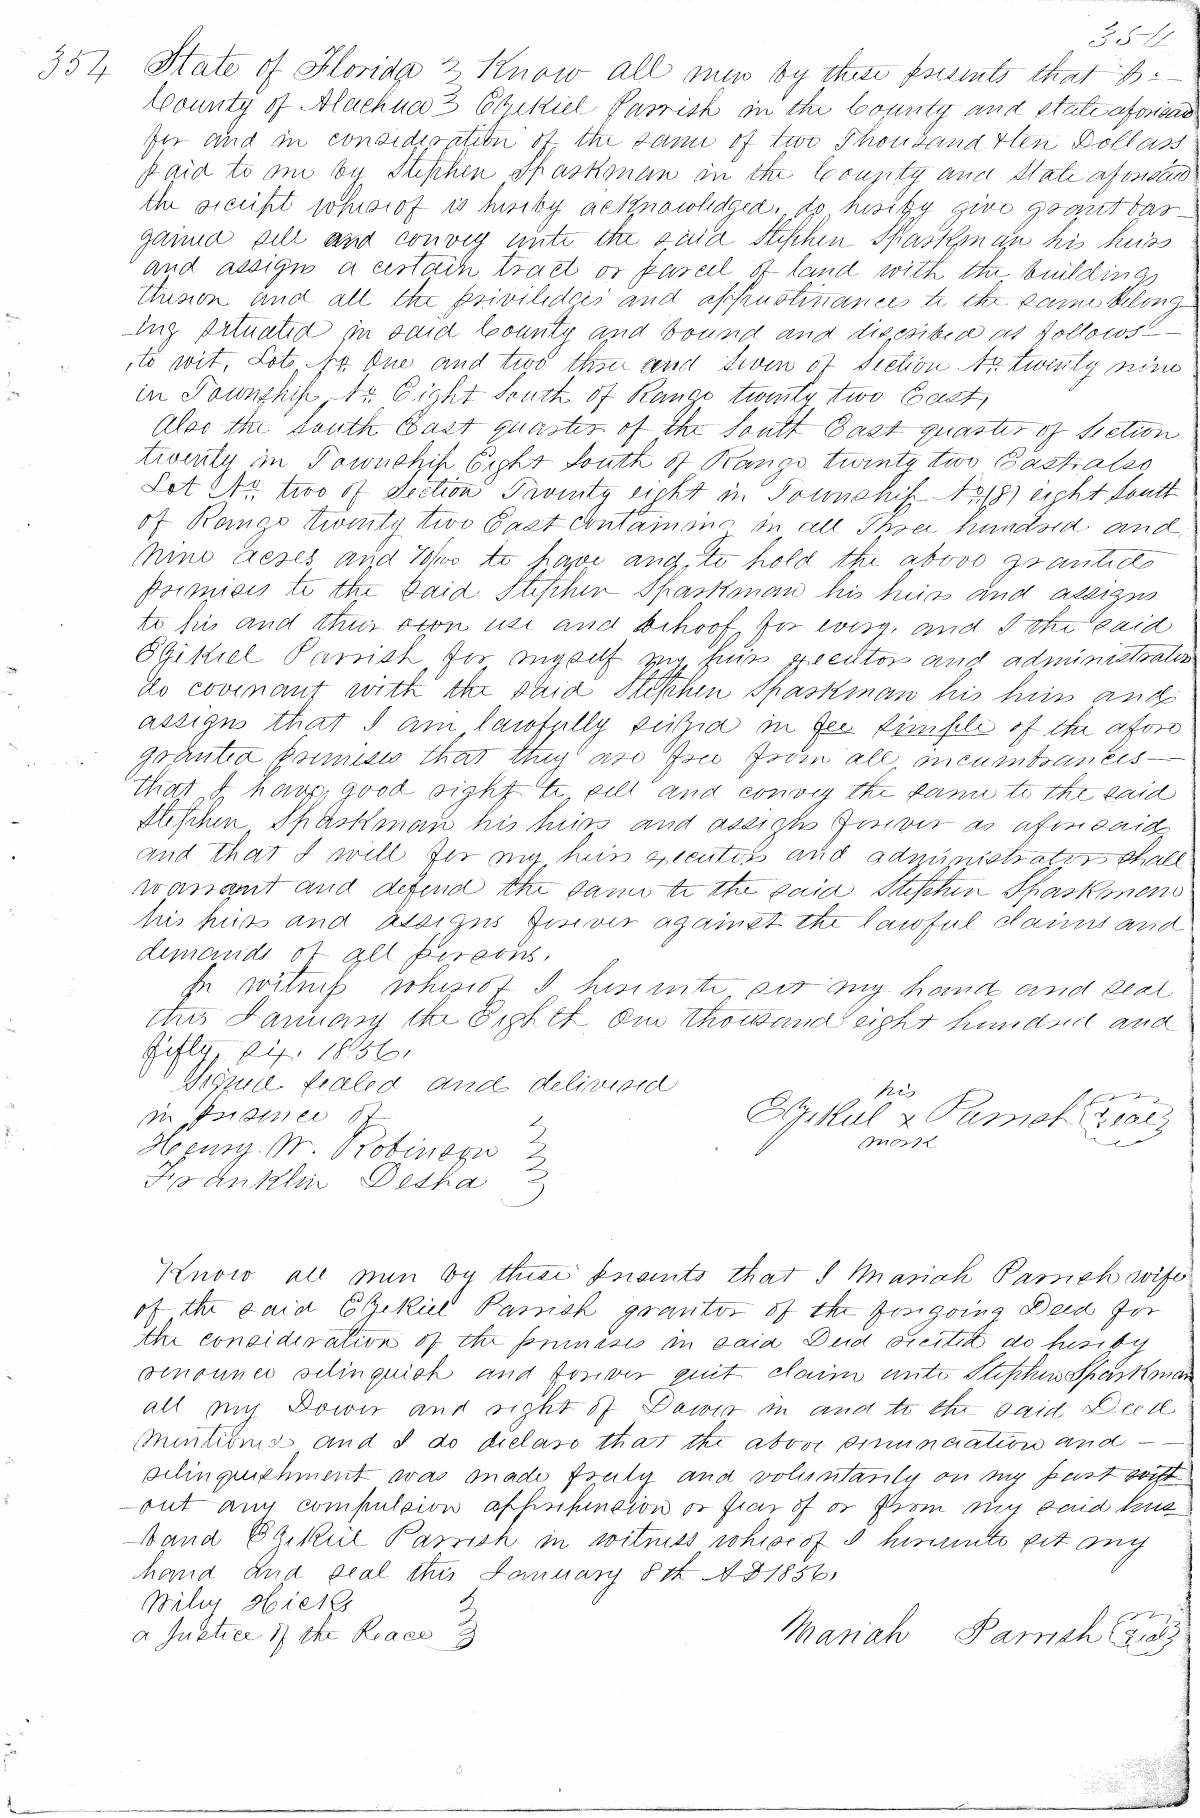 354
354 State of Florida } Know all men by these presents that I. —
County of Alachua } Ezekiel Parrish in the County and state aforesaid
for and in consideration of the same of two Thousand & ten Dollars
paid to me by Stephen Sparkman in the County and State aforesaid
the receipt whereof is hereby acknowledged. do hereby give grant bar-
gained sell and convey unto the said Stephen Sparkman his heirs
and assigns a certain tract or parcel of land with the buildings
thereon and all the priviledges and appurtinances to the same belong
-ing situated in said County and bound and discribed as follows —
to wit, Lots No. One and two three and Seven of Section No. twenty nine
in Township No. Eight South of Range twenty two East,
Also the South East quarter of the South East quarter of Section
twenty in Township Eight South of Range twenty two East also
Lot No. two of Section Twenty eight in Township No. (8) eight South
of Range twenty two East containing in all Three hundred and
nine acres and /100 to have and to hold the above granted
premises to the said Stephen Sparkman his heirs and assigns
to his and their own use and behoof for every. and I the said
Ezekiel Parrish for myself my heirs executors and administrators
do covenant with the said Stephen Sparkman his heirs and
assigns that I am lawfully seized in fee simple of the afore
granted premises that they are free from all incumbrances —
that I have good right to sell and convey the same to the said
Stephen Sparkman his heirs and assigns forever as aforesaid
and that I will for my heirs executors and administrators shall
warrant and defend the same to the said Stephen Sparkman
his heirs and assigns forever against the lawful claims and
demands of all persons.
In witness whereof I hereunto set my hand and seal
this January the Eighth One thousand eight hundred and
fifty six. 1856.
Signed sealed and delivered
in presence of
his
Ezekiel x Parrish (Seal)
mark
Henry W. Robinson }
Franklin Desha }
Know all men by these presents that I Mariah Parrish wife
of the said Ezekiel Parrish grantor of the foregoing Deed for
the consideration of the premises in said Deed recited do hereby
renounce relinquish and forever quit claim unto Stephen Sparkman
all my Dower and right of Dower in and to the said Deed
mentioned and I do declare that the above renunciation and — —
relinquishment was made freely and voluntarily on my part with
-out any compulsion apprehension or fear of or from my said hus
-band Ezekiel Parrish in witness whereof I hereunto set my
hand and seal this January 8th AD 1856.
Wiley Hicks }
a Justice of the Peace }
Mariah Parrish (Seal)